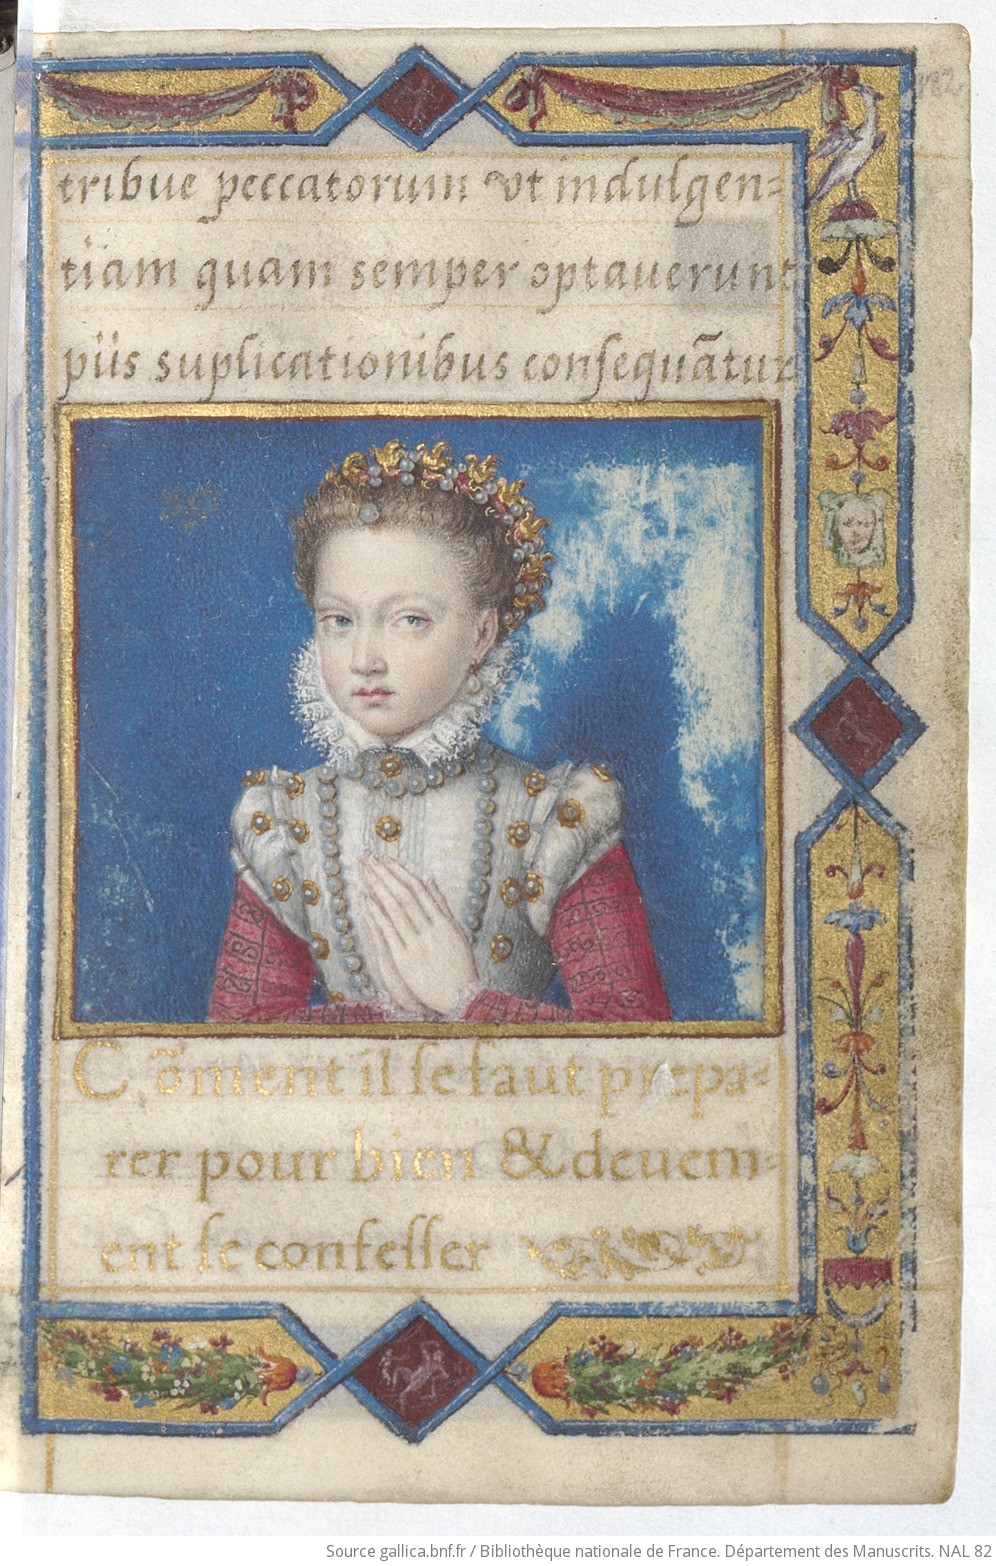 182
tribue peccatorum vt indulgen=
tiam quam semper optauerunt
piis suplicationibus consequātur
Cōment il se faut prepa=
rer pour bien & deuem=
ent se confesser
Source gallica.bnf.fr / Bibliothèque nationale de France. Département des Manuscrits. NAL 82